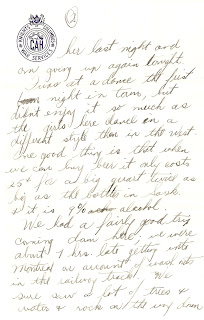 2
her last night and
am going up again tonight.
I was at a dance the first
night in town, but
didn't enjoy it so much as
the girls here dance in a
different style than in the west
one good thing is that when
we can buy beer it only costs
25¢ for a big quart twice as
big as the bottle in Sask.
& it is 9% alcohol.
We had a fairly good trip
coming down here, we were
about 7 hrs. late getting into
Montreal on account of wash outs
in the railway track. We
sure saw a lot of trees &
water & rock on the way down